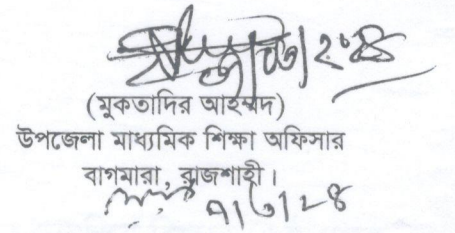 (মুকতাদির আহম্মদ)
উপজেলা মাধ্যমিক শিক্ষা অফিসার
বাগমারা, রাজশাহী।
৭/৩/২৪